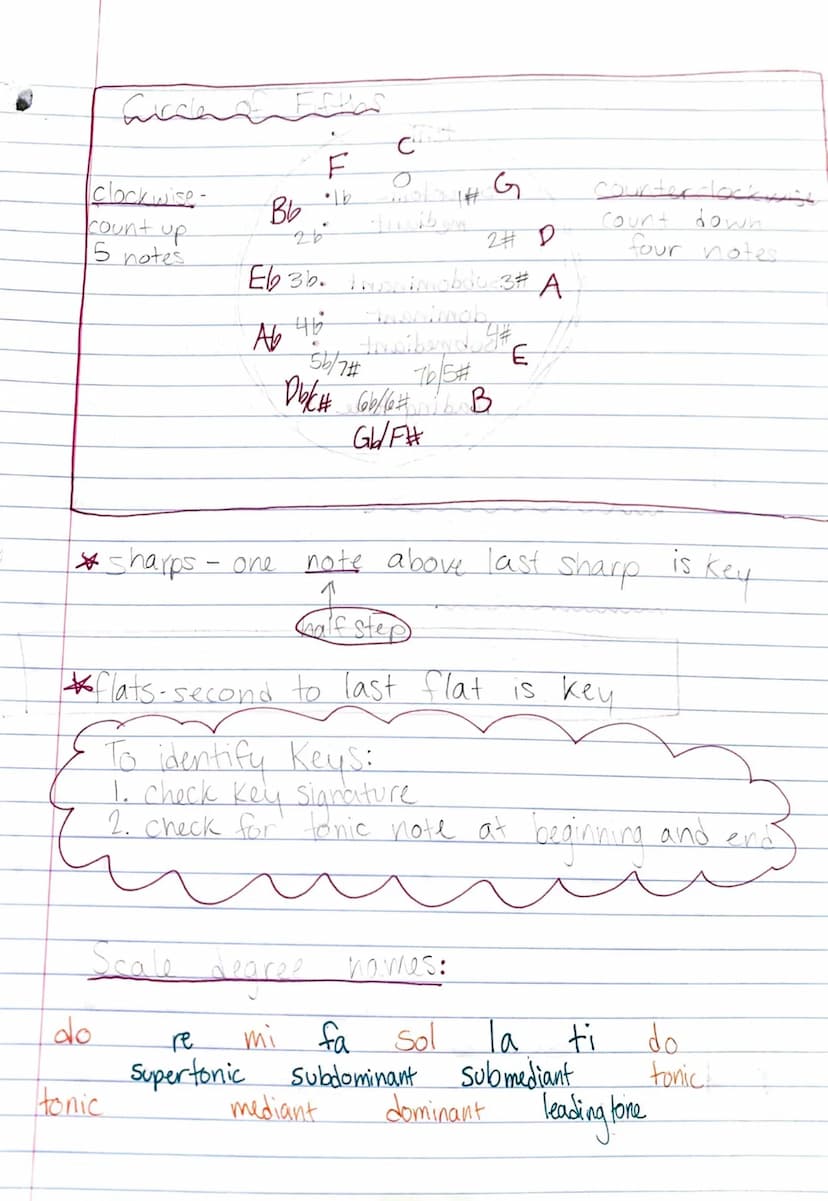 Circle of Fifths
C
F
0
G
1b
1#
clockwise -
counterclockwise
Bb
count up
count down
2b
2#
D
5 notes
four notes
Eb 3b
3# A
Ab 4b
4#
E
5b/7#
7b/5#
Db/C#
6b/6#
B
Gb/F#
* sharps - one note above last sharp is key
half step
* flats - second to last flat is key
To identify keys:
1. check key signature
2. check for tonic note at beginning and end
Scale degree names:
do re mi fa sol la ti do
supertonic subdominant submediant tonic
tonic mediant dominant leading tone